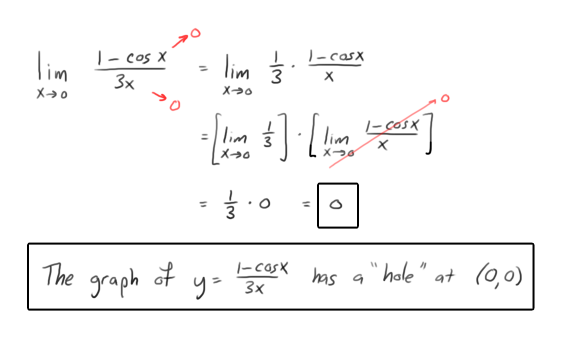 lim x→0 (1 - cos x)/(3x) → 0 → 0 = lim x→0 1/3 · (1 - cos x)/x
= [lim x→0 1/3] · [lim x→0 (1 - cos x)/x] → 0
= 1/3 · 0 = 0
The graph of y = (1 - cos x)/(3x) has a "hole" at (0,0)